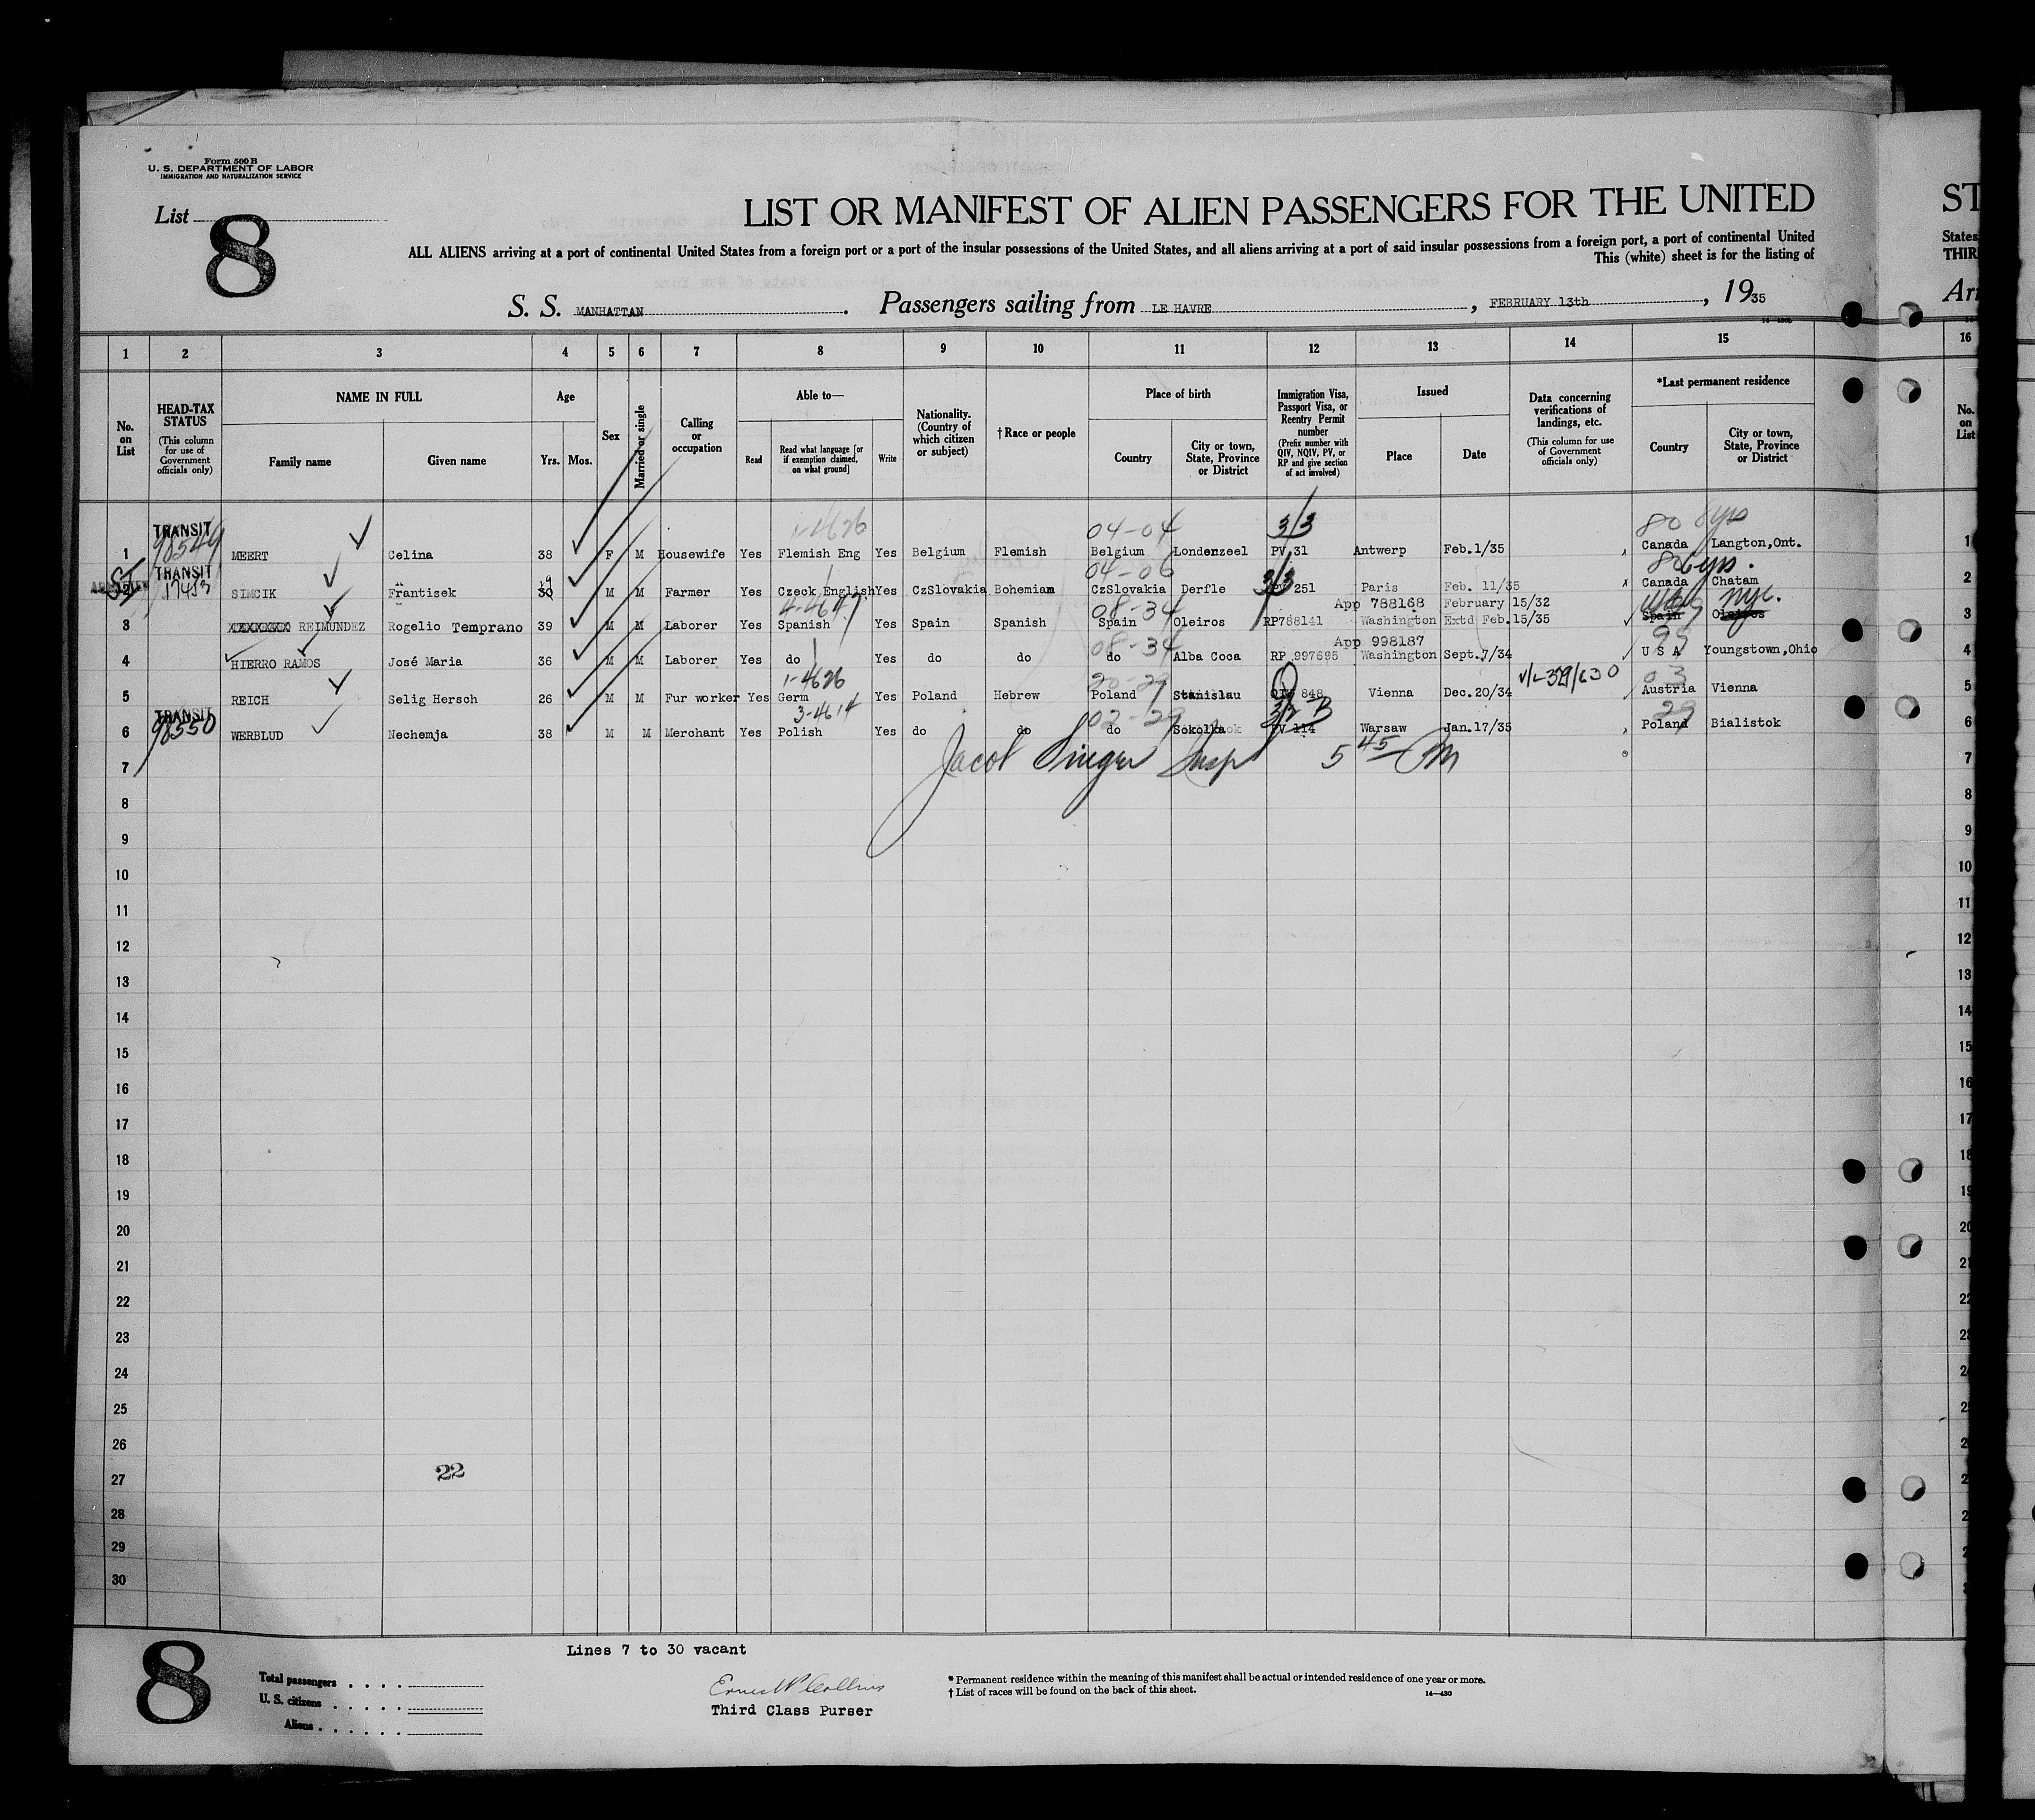 Form 500 B
U. S. DEPARTMENT OF LABOR
IMMIGRATION AND NATURALIZATION SERVICE
List 8
LIST OR MANIFEST OF ALIEN PASSENGERS FOR THE UNITED
ST
ALL ALIENS arriving at a port of continental United States from a foreign port or a port of the insular possessions of the United States, and all aliens arriving at a port of said insular possessions from a foreign port, a port of continental United
States
This (white) sheet is for the listing of
THIR
S. S. MANHATTAN. Passengers sailing from LE HAVRE, FEBRUARY 13th, 1935
Arr
1 2 3 4 5 6 7 8 9 10 11 12 13 14 15 16
No. on List
HEAD-TAX STATUS (This column for use of Government officials only)
NAME IN FULL
Family name
Given name
Age
Yrs. Mos.
Sex
Married or single
Calling or occupation
Able to—
Read
Read what language [or if exemption claimed, on what ground]
Write
Nationality. (Country of which citizen or subject)
†Race or people
Place of birth
Country
City or town, State, Province or District
Immigration Visa, Passport Visa, or Reentry Permit number (Prefix number with QIV, NQIV, PV, or RP and give section of act involved)
Issued
Place
Date
Data concerning verifications of landings, etc. (This column for use of Government officials only)
*Last permanent residence
Country
City or town, State, Province or District
No. on List
TRANSIT 98549 1-4626 04-04 3/3 80 8yrs
1 MEERT Celina 38 F M Housewife Yes Flemish Eng Yes Belgium Flemish Belgium Londenzeel PV 31 Antwerp Feb.1/35 Canada Langton,Ont. 1
TRANSIT 04-06 3/3 80 6yrs.
2 SIMCIK Frantisek 30 M M Farmer Yes Czeck English Yes CzSlovakia Bohemian CzSlovakia Derfle PV 251 Paris Feb. 11/35 Canada Chatam 2
08-34 App 788168 February 15/32 nyc.
3 XXXXXXXX REIMUNDEZ Rogelio Temprano 39 M M Laborer Yes Spanish Yes Spain Spanish Spain Oleiros RP788141 Washington Extd Feb.15/35 Spain Oleiros 3
08-34 App 998187 99
4 HIERRO RAMOS José Maria 36 M M Laborer Yes do Yes do do do Alba Coca RP 997695 Washington Sept.7/34 U S A Youngstown,Ohio 4
1-4626 20-29 03
5 REICH Selig Hersch 26 M M Fur worker Yes Germ Yes Poland Hebrew Poland Stanislau 848 Vienna Dec.20/34 Austria Vienna 5
TRANSIT 98550 3-4614 02-29 29
6 WERBLUD Nechemja 38 M M Merchant Yes Polish Yes do do do Sokolka PV 114 Warsaw Jan.17/35 Poland Bialistok 6
7 Jacob Singer Insp 5 45 PM 7
8 8
9 9
10 10
11 11
12 12
13 13
14 14
15 15
16 16
17 17
18 18
19 19
20 20
21 21
22 22
23 23
24 24
25 25
26 2
22
27 2
28 2
29 2
30
8
Lines 7 to 30 vacant
Total passengers
U. S. citizens
Aliens
Third Class Purser
* Permanent residence within the meaning of this manifest shall be actual or intended residence of one year or more.
† List of races will be found on the back of this sheet.
14—430